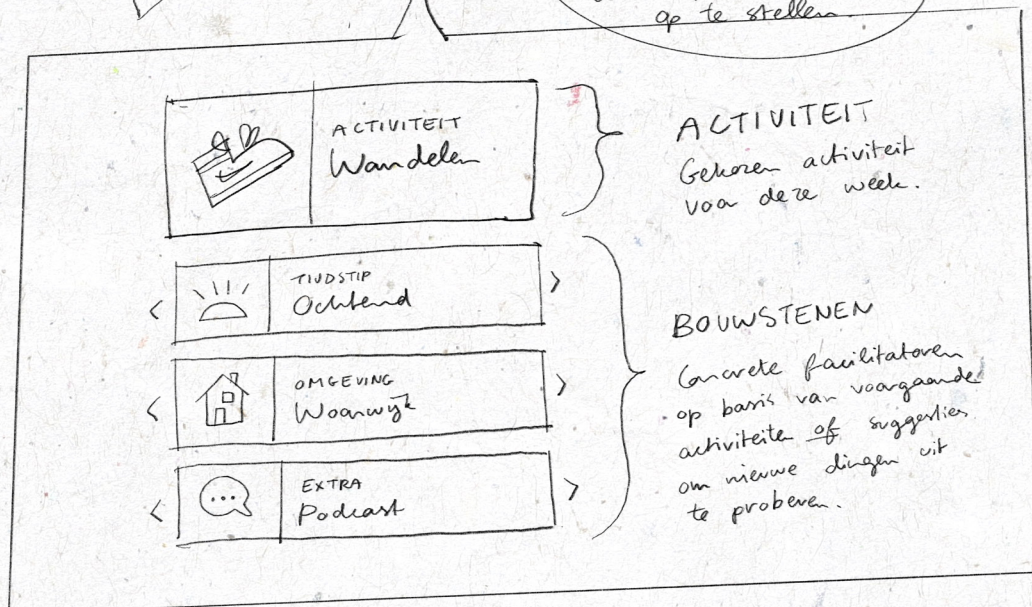 op te stellen.
ACTIVITEIT
Wandelen
ACTIVITEIT
Gekozen activiteit
voor deze week.
TIJDSTIP
Ochtend
OMGEVING
Woonwijk
EXTRA
Podcast
BOUWSTENEN
Concrete facilitatoren
op basis van voorgaande
activiteiten of suggesties
om nieuwe dingen uit
te proberen.